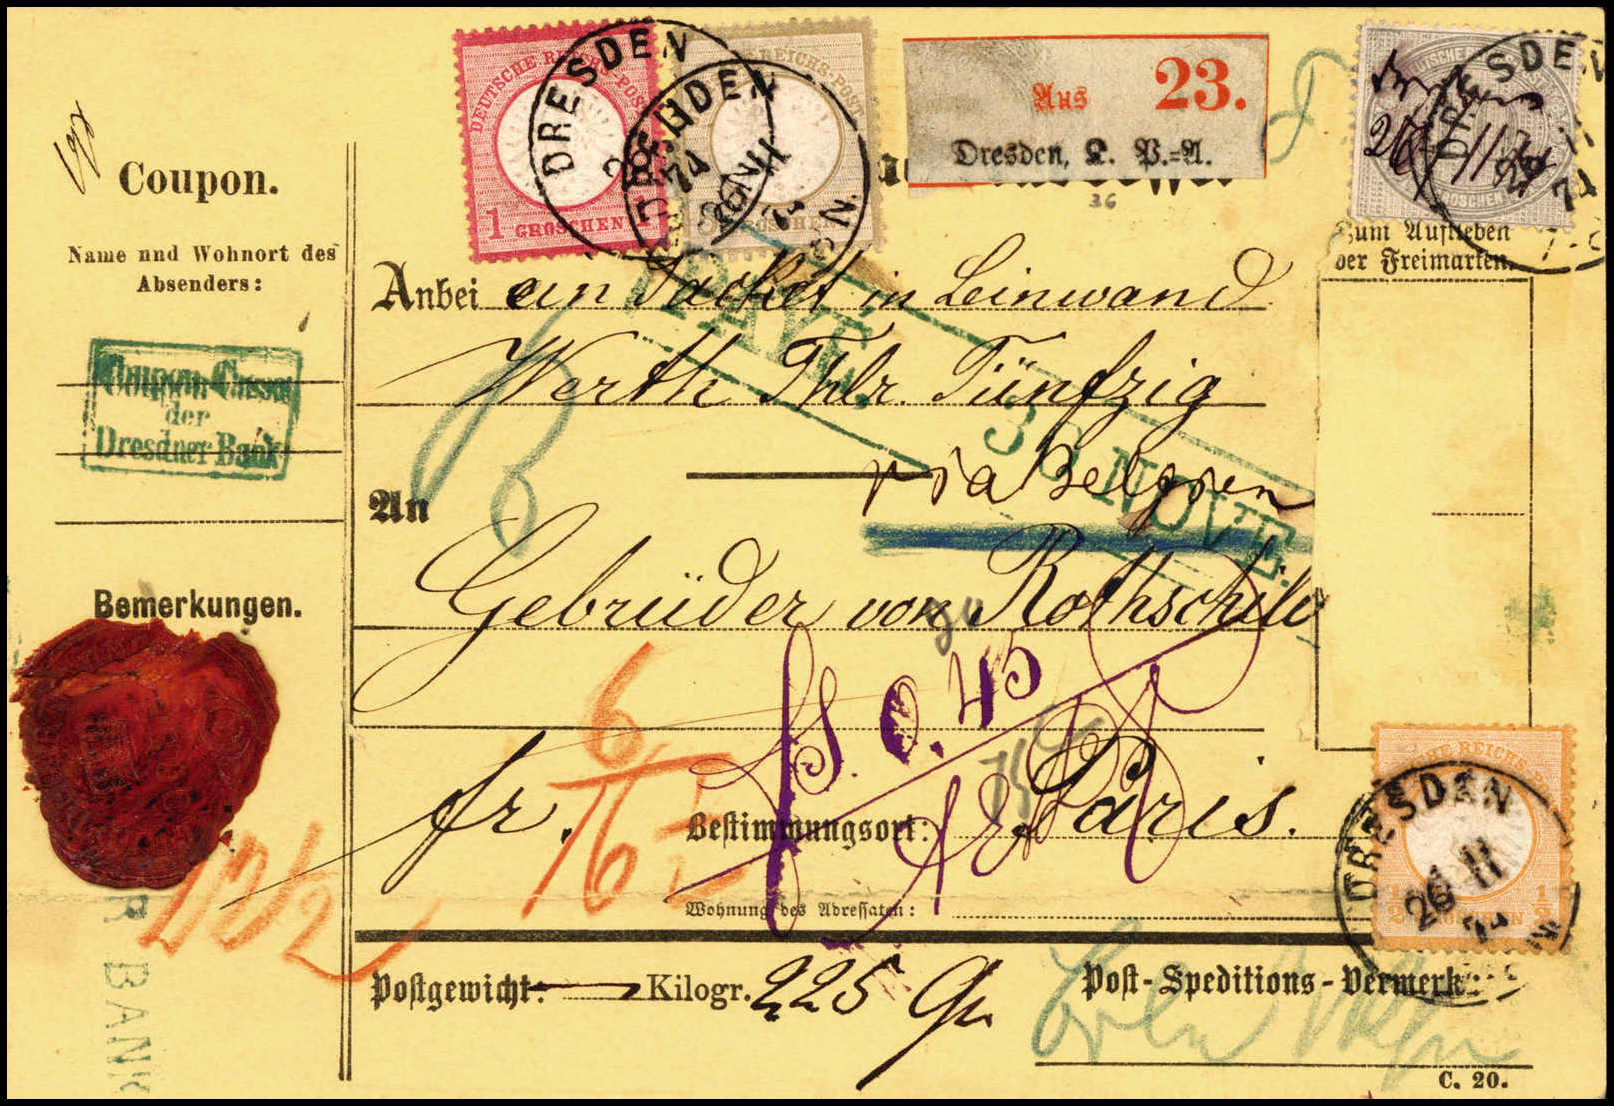 DEUTSCHE REICHS-POST
1 GROSCHEN
DRESDEN
DRESDEN
REICHS-POST
Aus 23.
Dresden, L. P.=A.
DRESDEN
26 74
GROSCHEN
36
Coupon.
Name und Wohnort des
Absenders:
Coupon-Casse
der
Dresdner Bank
Bemerkungen.
R BANK
Zum Aufkleben
der Freimarken.
Anbei ein Packet in Leinwand
Werth Thlr. Fünfzig
PAYÉ.
30 NOVE.
via Belgien
An
Gebrüder von Rothschild
6
fr.
fl. 0.45
Bestimmungsort: Paris.
Wohnung des Adressaten:
REICHS-POST
1/2 1/2
DRESDEN
26 11
74
Postgewicht: Kilogr. 225 Gr
Post-Speditions-Vermerk:
C. 20.